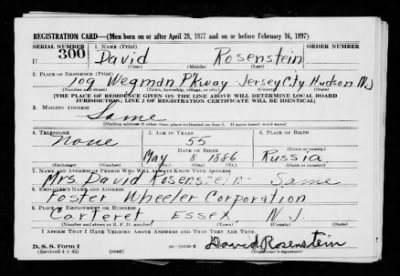 REGISTRATION CARD—(Men born on or after April 28, 1877 and on or before February 16, 1897)
SERIAL NUMBER 1. NAME (Print) ORDER NUMBER
U 300 David Rosenstein
(First) (Middle) (Last)
2. PLACE OF RESIDENCE (Print)
109 Wegman Pkway Jersey City Hudson NJ
(Number and street) (Town, township, village, or city) (County) (State)
[THE PLACE OF RESIDENCE GIVEN ON THE LINE ABOVE WILL DETERMINE LOCAL BOARD
JURISDICTION; LINE 2 OF REGISTRATION CERTIFICATE WILL BE IDENTICAL]
3. MAILING ADDRESS
Same
[Mailing address if other than place indicated on line 2. If same insert word same]
4. TELEPHONE 5. AGE IN YEARS 6. PLACE OF BIRTH
None 55
DATE OF BIRTH (Town or county)
May 8 1886 Russia
(Exchange) (Number) (Mo.) (Day) (Yr.) (State or country)
7. NAME AND ADDRESS OF PERSON WHO WILL ALWAYS KNOW YOUR ADDRESS
Mrs. David Rosenstein - Same
8. EMPLOYER'S NAME AND ADDRESS
Foster Wheeler Corporation
9. PLACE OF EMPLOYMENT OR BUSINESS
Carteret Essex N.J.
(Number and street or R. F. D. number) (Town) (County) (State)
I AFFIRM THAT I HAVE VERIFIED ABOVE ANSWERS AND THAT THEY ARE TRUE.
D. S. S. Form 1
(Revised 4-1-42) David Rosenstein